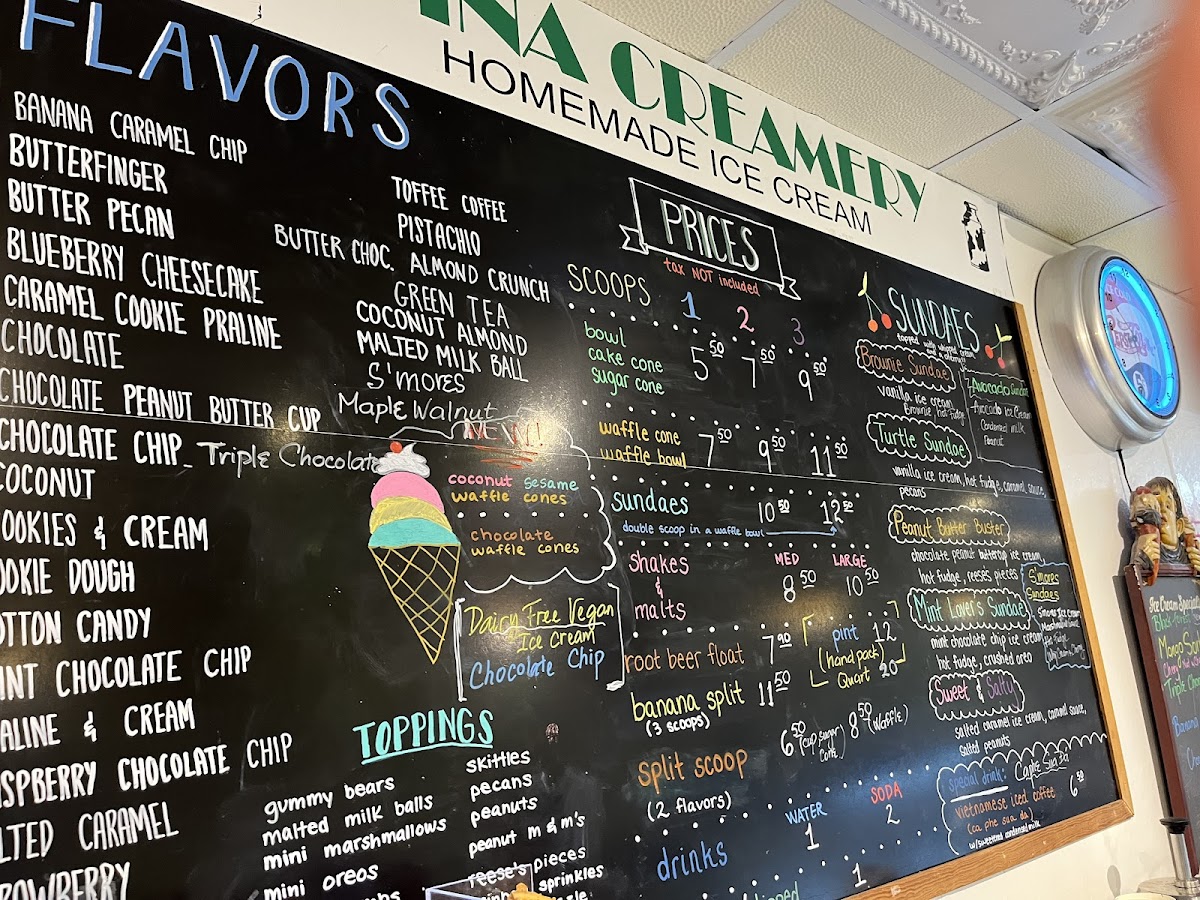 INA CREAMERY
HOMEMADE ICE CREAM
FLAVORS
BANANA CARAMEL CHIP
BUTTERFINGER
BUTTER PECAN
BLUEBERRY CHEESECAKE
CARAMEL COOKIE PRALINE
CHOCOLATE
CHOCOLATE PEANUT BUTTER CUP
CHOCOLATE CHIP - Triple Chocolate
COCONUT
OOKIES & CREAM
OOKIE DOUGH
OTTON CANDY
INT CHOCOLATE CHIP
ALINE & CREAM
SPBERRY CHOCOLATE CHIP
LTED CARAMEL
ROWBERRY
TOFFEE COFFEE
PISTACHIO
BUTTER CHOC. ALMOND CRUNCH
GREEN TEA
COCONUT ALMOND
MALTED MILK BALL
S'MORES
Maple Walnut
NEW!!
coconut sesame
waffle cones
chocolate
waffle cones
Dairy Free Vegan
Ice Cream
Chocolate Chip
TOPPINGS
gummy bears
malted milk balls
mini marshmallows
mini oreos
skittles
pecans
peanuts
peanut m & m's
reese's pieces
sprinkles
PRICES
tax NOT included
SCOOPS 1 2 3
bowl
cake cone
sugar cone
5 50 7 50 9 50
waffle cone
waffle bowl
7 50 9 50 11 50
sundaes 10 50 12 50
double scoop in a waffle bowl
shakes
&
malts
MED LARGE
8 50 10 50
root beer float 7 90
pint 12
(hand pack)
Quart 20
banana split 11 50
(3 scoops)
split scoop 6 50 (cup, sugar cone) 8 50 (waffle)
(2 flavors)
drinks
WATER SODA
1 2
1
SUNDAES
topped with whipped cream
and a cherry!!
Brownie Sundae
vanilla ice cream
Brownie, hot fudge
Avocado Sundae
Avocado Ice Cream
Condensed milk
Peanut
Turtle Sundae
vanilla ice cream, hot fudge, caramel sauce,
pecans
Peanut Butter Buster
chocolate peanut buttercup ice cream
hot fudge, reese's pieces
S'mores
Sundaes
Smores Ice Cream
Marshmallow
Mint Lover's Sundae
mint chocolate chip ice cream
hot fudge, crushed oreo
Sweet & Salty
salted caramel ice cream, caramel sauce,
salted peanuts
special drink: Caphe Sua Da
vietnamese iced coffee 6 50
(ca phe sua da)
w/sweetened condensed milk
Ice Cream Special
Mango
Triple Cho